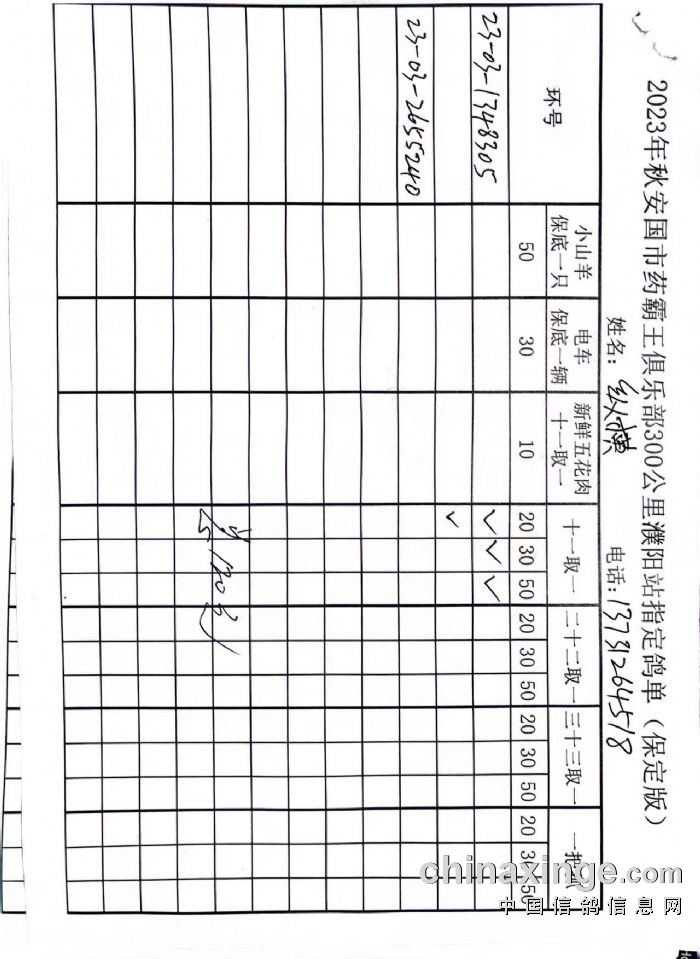 2023年秋安国市药霸王俱乐部300公里濮阳站指定鸽单（保定版）
姓名： 电话：13731264518
环号 小山羊保底一只 电车保底一辆 新鲜五花肉十一取一 十一取一 二十二取一 三十三取一 一把抓
50 30 10 20 30 50 20 30 50 20 30 50 20 30 50
23-03-1348305 ✓ ✓ ✓
✓
23-03-2655240
chinaxinge.com
中国信鸽信息网